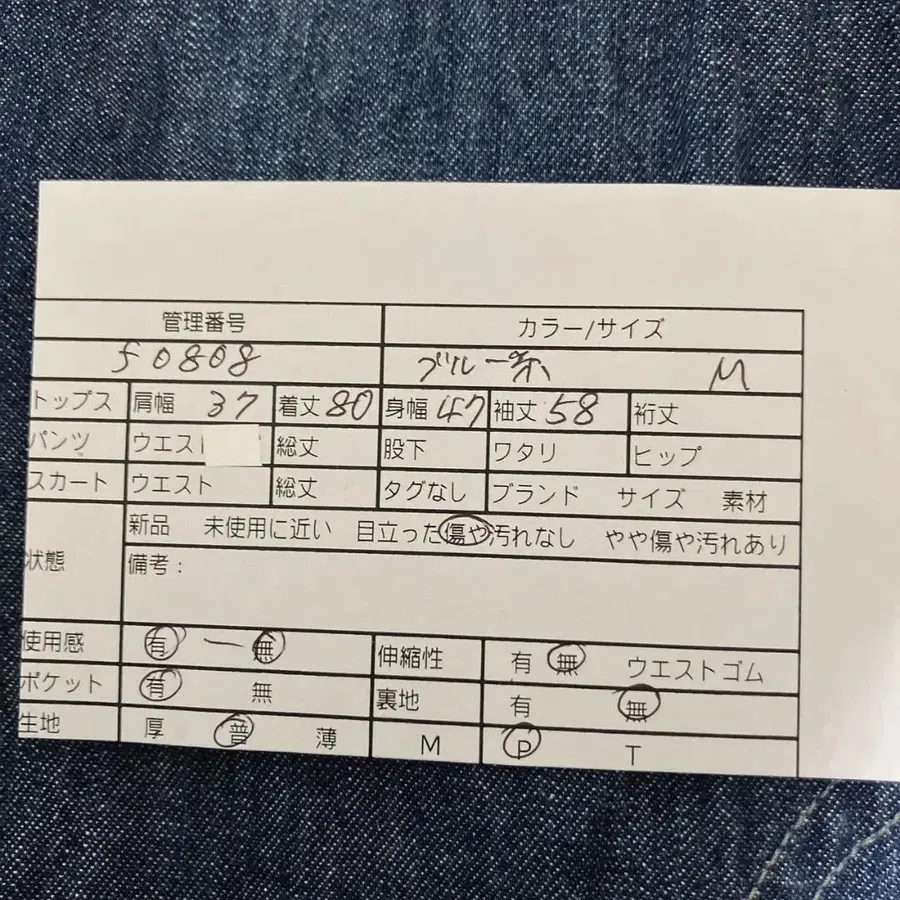 管理番号 カラー/サイズ
50808 ブルー系 M
トップス 肩幅 37 着丈 80 身幅 47 袖丈 58 裄丈
パンツ ウエスト 総丈 股下 ワタリ ヒップ
スカート ウエスト 総丈 タグなし ブランド サイズ 素材
状態 新品 未使用に近い 目立った傷や汚れなし やや傷や汚れあり
備考:
使用感 有 ー 無 伸縮性 有 無 ウエストゴム
ポケット 有 無 裏地 有 無
生地 厚 普 薄 M P T